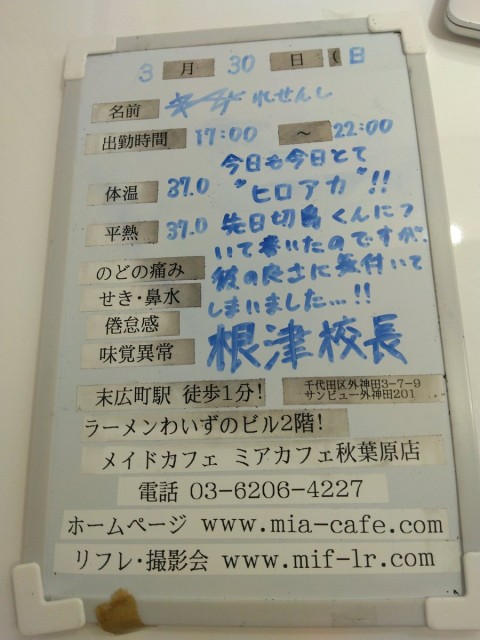 3 月 30 日 ( 日
名前 れせんし
出勤時間 17:00 ～ 22:00
今日も今日とて
体温 37.0 "ヒロアカ"!!
平熱 37.0 先日切島くんにつ
いて書いたのですが、
のどの痛み 彼の良さに気付いて
せき・鼻水 しまいました…!!
倦怠感
味覚異常 根津校長
末広町駅 徒歩1分! 千代田区外神田3-7-9
サンビュー外神田201
ラーメンわいずのビル2階!
メイドカフェ ミアカフェ秋葉原店
電話 03-6206-4227
ホームページ www.mia-cafe.com
リフレ・撮影会 www.mif-lr.com